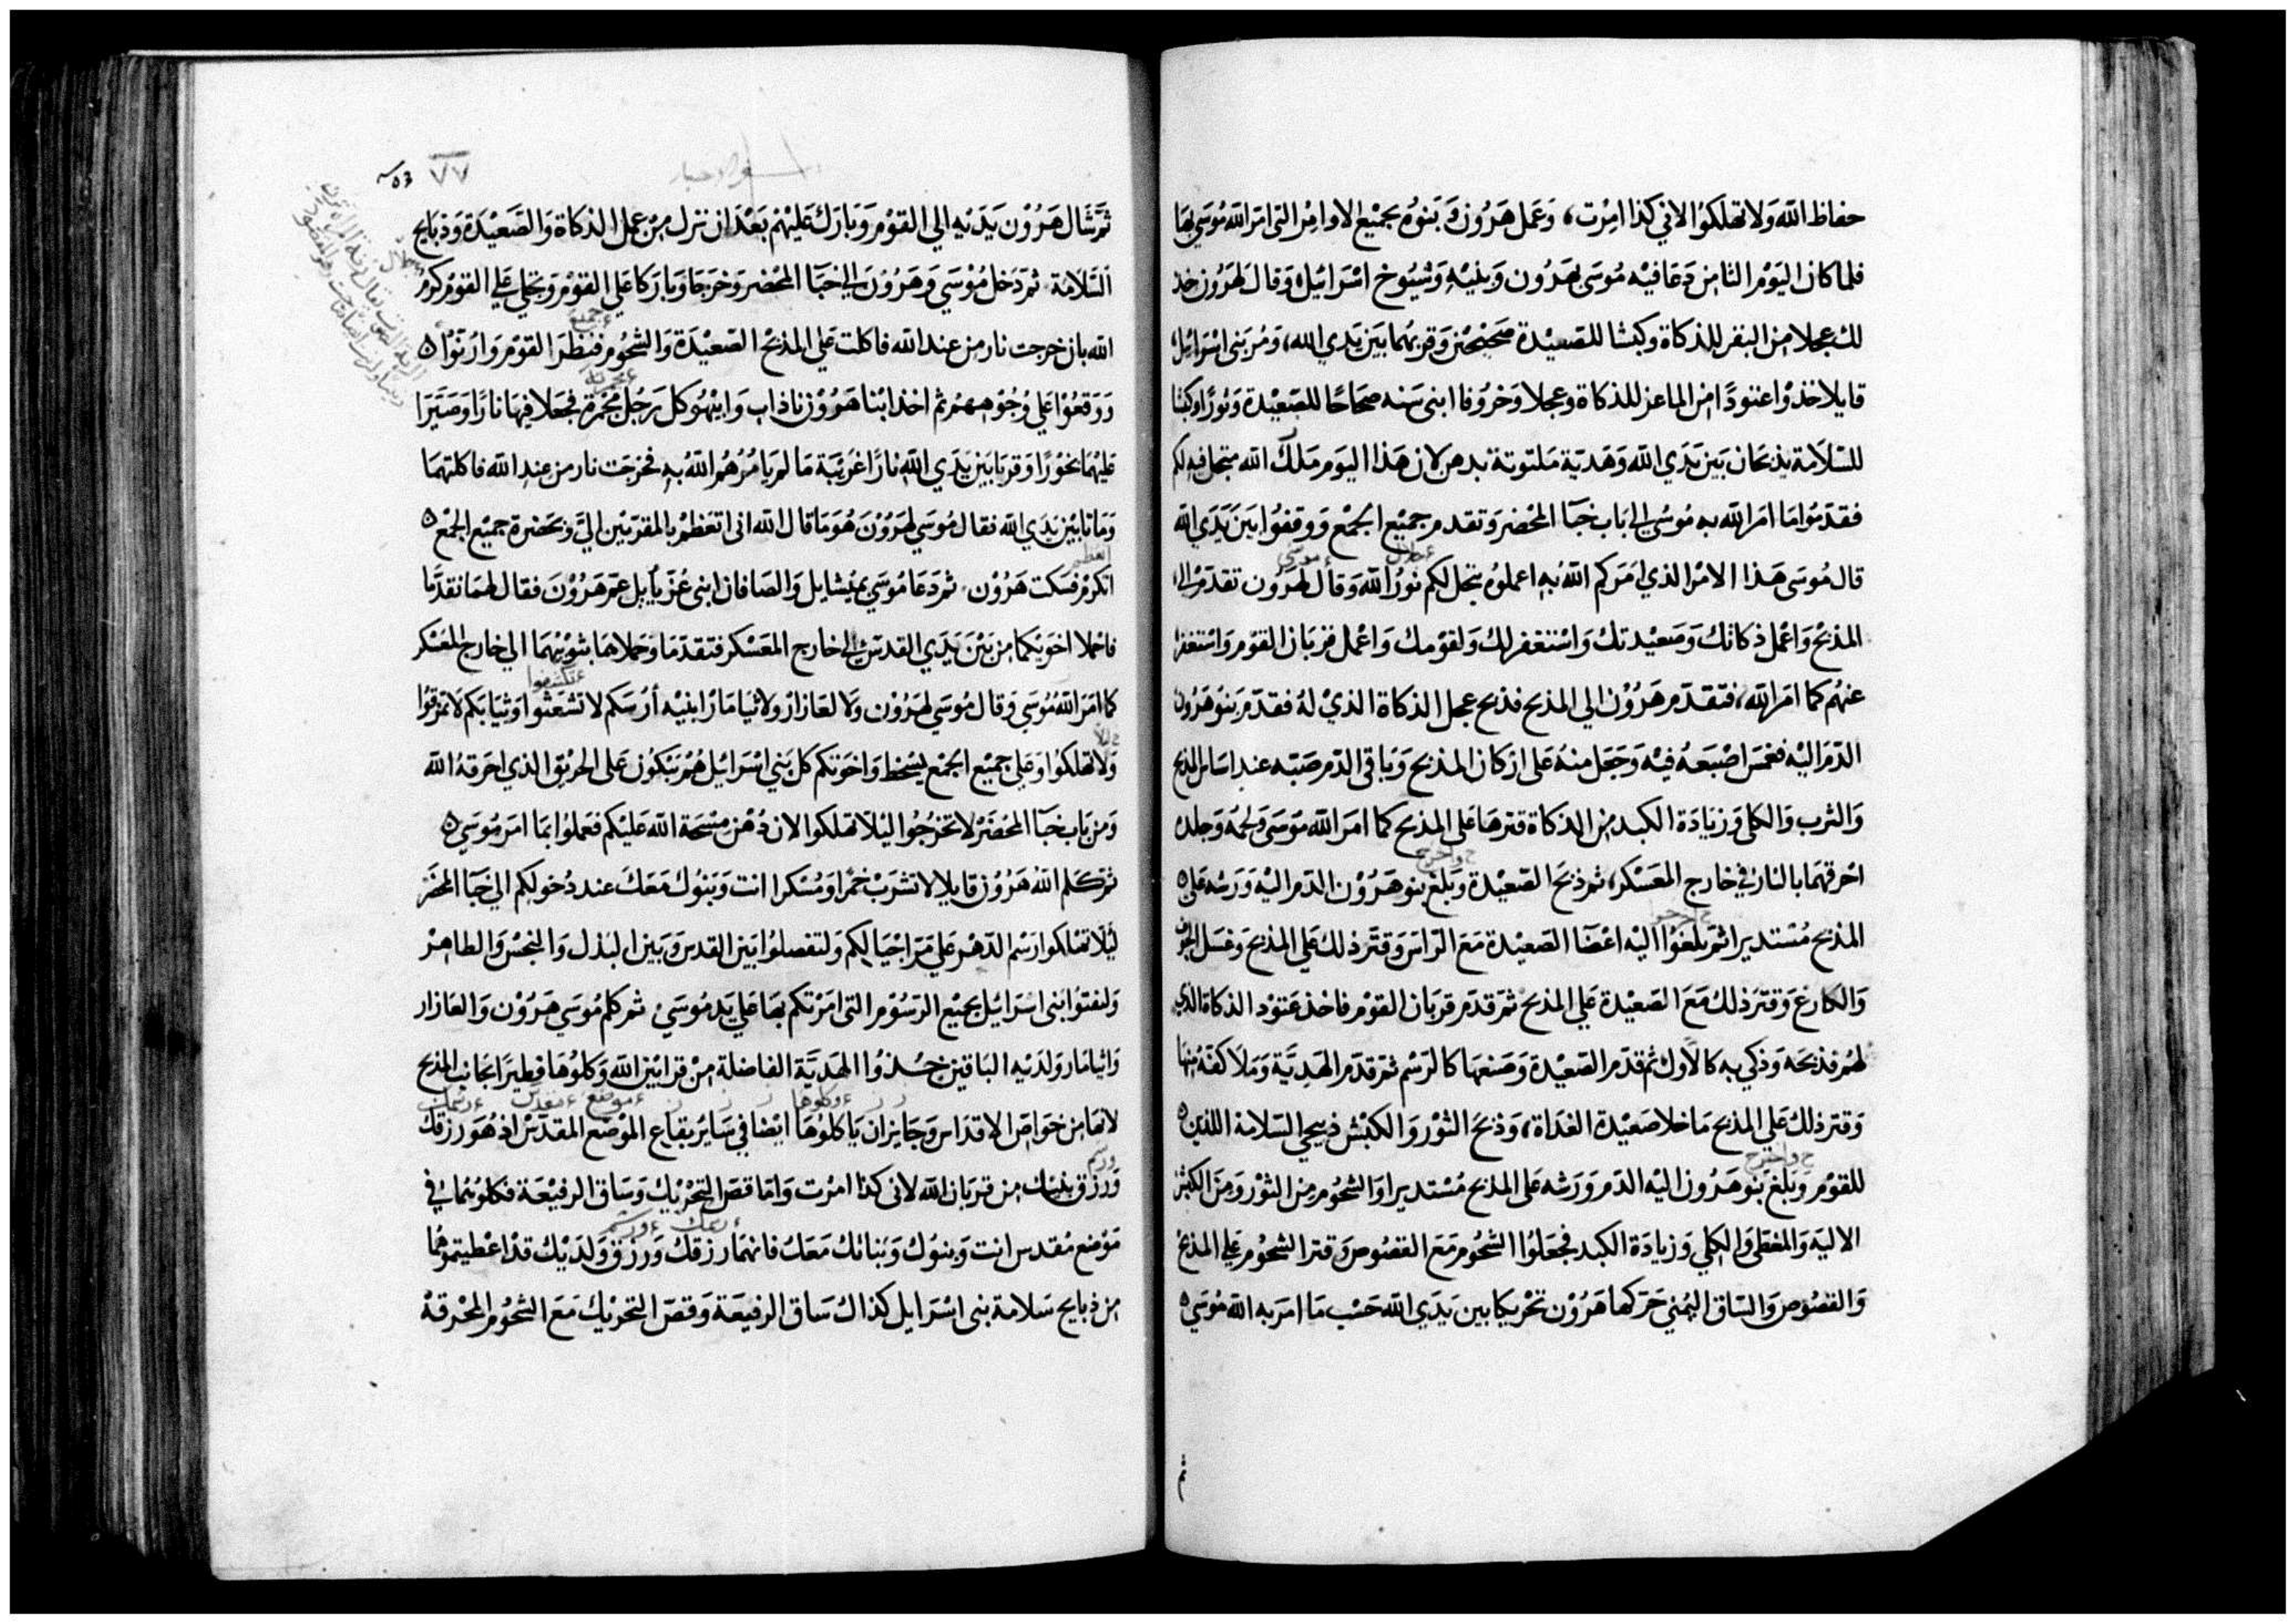 حفاظ الله ولا تهلكوا لاني كذا امرت، وعمل هرون وبنوه بجميع الاوامر التى امر الله موسى بها
فلما كان اليوم الثامن دعا فيه موسى بهرون وبنيه وشيوخ اسرائيل وقال لهرون خذ
لك عجلا من البقر للذكاة وكبشا للصعيدة صحيحين وقربهما بين يدي الله، ومر بنى اسرائيل
قايلا خذوا عتودًا من الماعز للذكاة وعجلا وخروفا ابنى سنه صحاحًا للصعيدة وثورًا وكبشا
للسلامة يذبحان بين يدي الله وهدية ملتوتة بدهن لان هذا اليوم ملك الله متجل فيه لكم
فقدموا ما امر الله به موسى الى باب خبآ المحضر وتقدم جميع الجمع ووقفوا بين يدى الله
قال موسى هذا الامر الذي امركم الله به اعملوه يتجل لكم نور الله وقال لهرون تقدم الى
المذبح واعمل ذكاتك وصعيدتك واستغفر لك ولقومك واعمل قربان القوم واستغفر
عنهم كما امر الله، فتقدم هرون الي المذبح فذبح عجل الذكاة الذي له فقدم بنو هرون
الدم اليه فغمس اصبعه فيه وجعل منه على اركان المذبح وباقى الدم صبه عند اساس المذبح
والثرب والكلى وزيادة الكبد من الذكاة قترها على المذبح كما امر الله موسى ولحمه وجلده
احرقهما بالنار في خارج المعسكر، ثم ذبح الصعيدة وبلغ بنو هرون الدم اليه ورشه على
المذبح مستديرا ثم بلغوا اليه اعضا الصعيدة مع الراس وقتر ذلك على المذبح وغسل الجوف
والكارع وقتر ذلك مع الصعيدة علي المذبح ثم قدم قربان القوم فاخذ عتود الذكاة الذي
لهم فذبحه وذكي به كالاول ثم قدم الصعيدة وصنعها كالرسم ثم قدم الهدية وملا كفه منها
وقتر ذلك علي المذبح ما خلا صعيدة الغداة، وذبح الثور والكبش ذبيحي السلامة اللذين
للقوم وبلغ بنو هرون اليه الدم ورشه على المذبح مستديرا والشحوم من الثور ومن الكبش
الاليه والمغطى والكلي وزيادة الكبد فجعلوا الشحوم مع القصوص وقتر الشحوم علي المذبح
والقصوص والساق اليمني حركها هرون تحريكا بين يدي الله حسب ما امر به الله موسى
ثم
٧٧
ثم شال هرون يديه الي القوم وبارك عليهم بعد ان نزل من عمل الذكاة والصعيدة وذبايح
السلامة ثم دخل موسي وهرون الى خبآ المحضر وخرجا وباركا علي القوم وتجلي علي القوم كرم
الله بان خرجت نار من عند الله فاكلت على المذبح الصعيدة والشحوم فنظر القوم وارنوا
ووقعوا علي وجوههم ثم اخذ ابنا هرون ناداب وابيهو كل رجل مجمرة فجعلا فيها نارًا وصيرا
عليهما بخورًا وقربا بين يدي الله نارًا غريبة ما لم يامرهم الله به فخرجت نار من عند الله فاكلتهما
وماتا بين يدي الله فقال موسي لهرون هو ما قال الله انى اتعظم بالمقربين الي وبحضرة جميع الجمع
اتكرم فسكت هرون ثم دعا موسي بميشايل والصافان ابنى عزيايل عم هرون فقال لهما تقدما
فاحملا اخويكما من بين يدي القدس الى خارج المعسكر فتقدما وحملاهما بثوبيهما الي خارج المعسكر
كما امر الله موسي وقال موسي لهرون ولالعازار ولاثيامار ابنيه ارسكم لا تشعثوا وثيابكم لا تمزقوا
ولا تهلكوا وعلي جميع الجمع يسخط واخوتكم كل بني اسرائيل هم يبكون على الحريق الذي احرقه الله
ومن باب خبآ المحضر لا تخرجوا ليلا تهلكوا لان دهن مسحة الله عليكم فعملوا بما امر موسي
ثم كلم الله هرون قايلا لا تشرب خمرا ومسكرا انت وبنوك معك عند دخولكم الي خبآ المحضر
ليلا تهلكوا رسم الدهر علي مر اجيالكم ولتفصلوا بين القدس وبين البذل والنجس والطاهر
ولتفتوا بنى اسرائيل بجميع الرسوم التى امرتكم بها على يد موسى ثم كلم موسي هرون والعازار
واثيامار ولديه الباقين خذوا الهدية الفاضلة من قرابين الله وكلوها فطيرا بجانب المذبح
لانها من خواص الاقداس وجايز ان ياكلوها ايضا في ساير بقاع الموضع المقدس اذ هو رزقك
ورزق بنيك من قربان الله لانى كذا امرت واما قص التحريك وساق الرفيعة فكلوهما في
موضع مقدس انت وبنوك وبناتك معك فانهما رزقك ورزق ولديك قد اعطيتموهما
من ذبايح سلامة بنى اسرايل كذاك ساق الرفيعة وقص التحريك مع الشحوم المحرقة